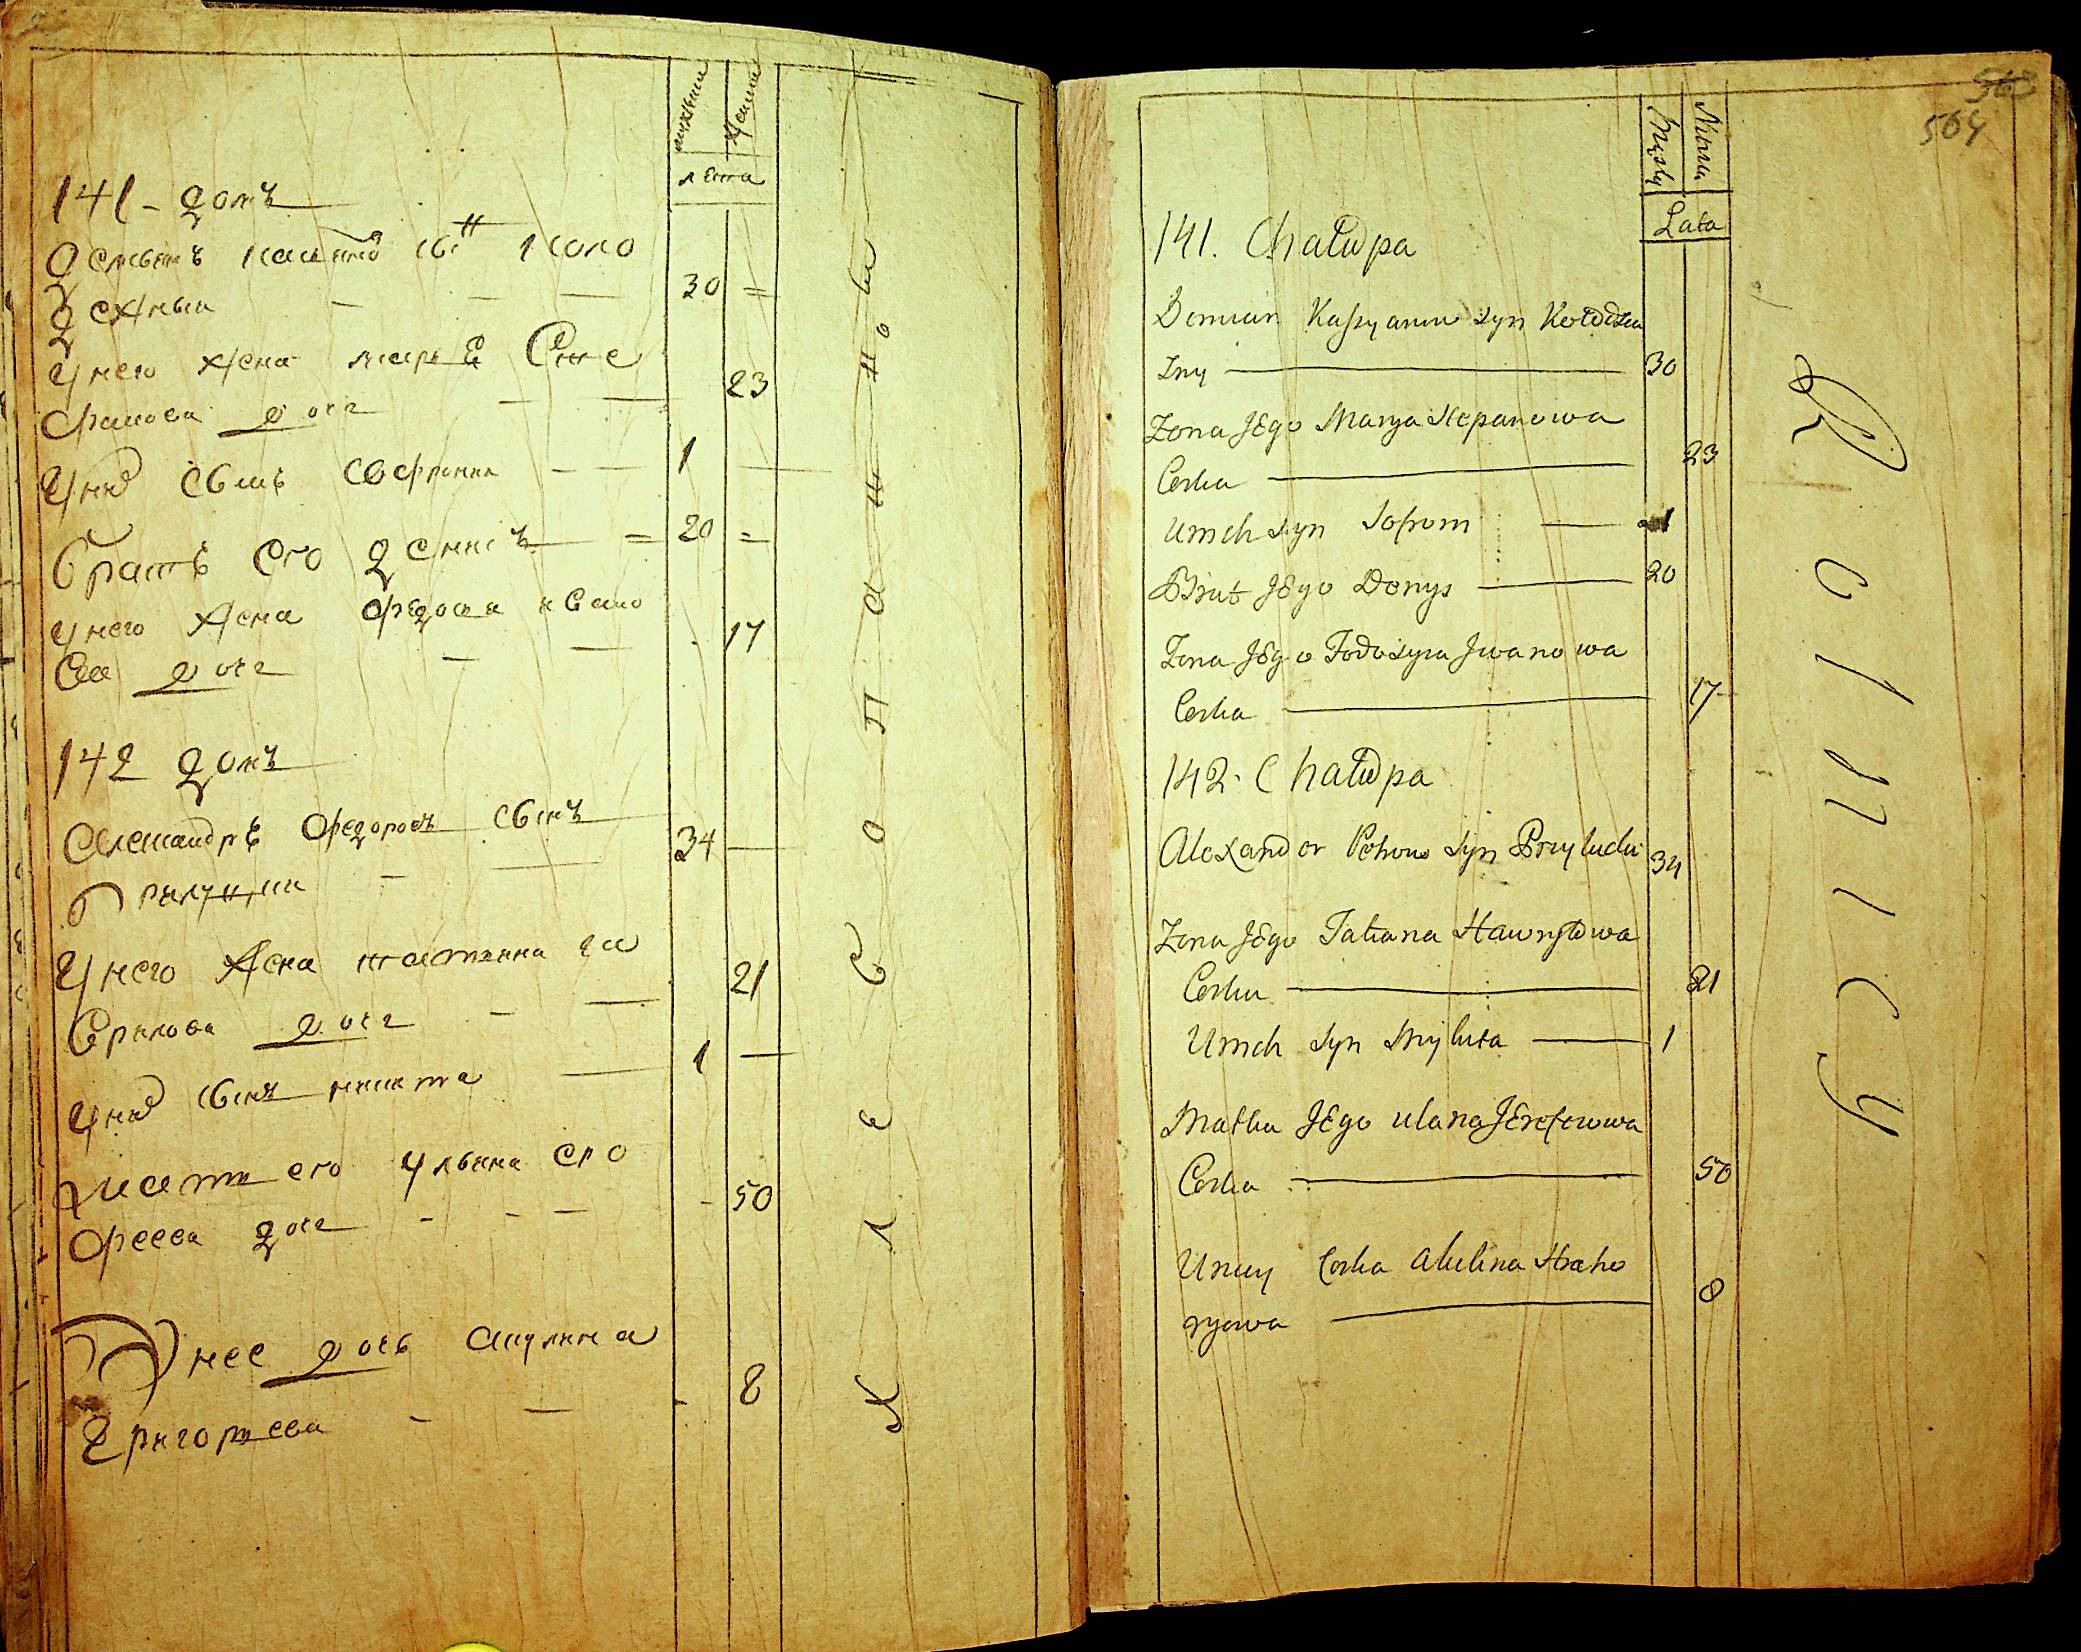 мужска
женска
лета
141 - домъ
Демьянъ касьяновъ сынъ коло
дежный 30
У него жена марья Сте
фанова дочь 23
У них сынъ Сафронъ 1
братъ его денисъ 20
У него жена федосья ивано
ва дочь 17
142 домъ
Александръ Федоровъ сынъ 34
Прилуцки
У него жена татьяна га
врилова дочь 21
У них сынъ микита 1
мать его ульяна еро
феева дочь 50
У нее дочь акулина 8
григорьева
563
564
Męzka
Niewia
Lata
141. Chałupa
Demian Kassyanow syn Kołodez
zny 30
Zona Jego Marya Stepanowa
Corka 23
U nich syn Sofrom 1
Brat Jego Denys 20
Zona Jego Fodosyia Jwanowa
Corka 17
142. Chałupa
Alexander syn Przyłucki 34
Zona Jego Tatiana Hawryłowa
Corka 21
U nich syn Mykita 1
Matka Jego ulana Jerofeowa
Corka 50
U niey Corka Akulina Hreho
ryowa 8